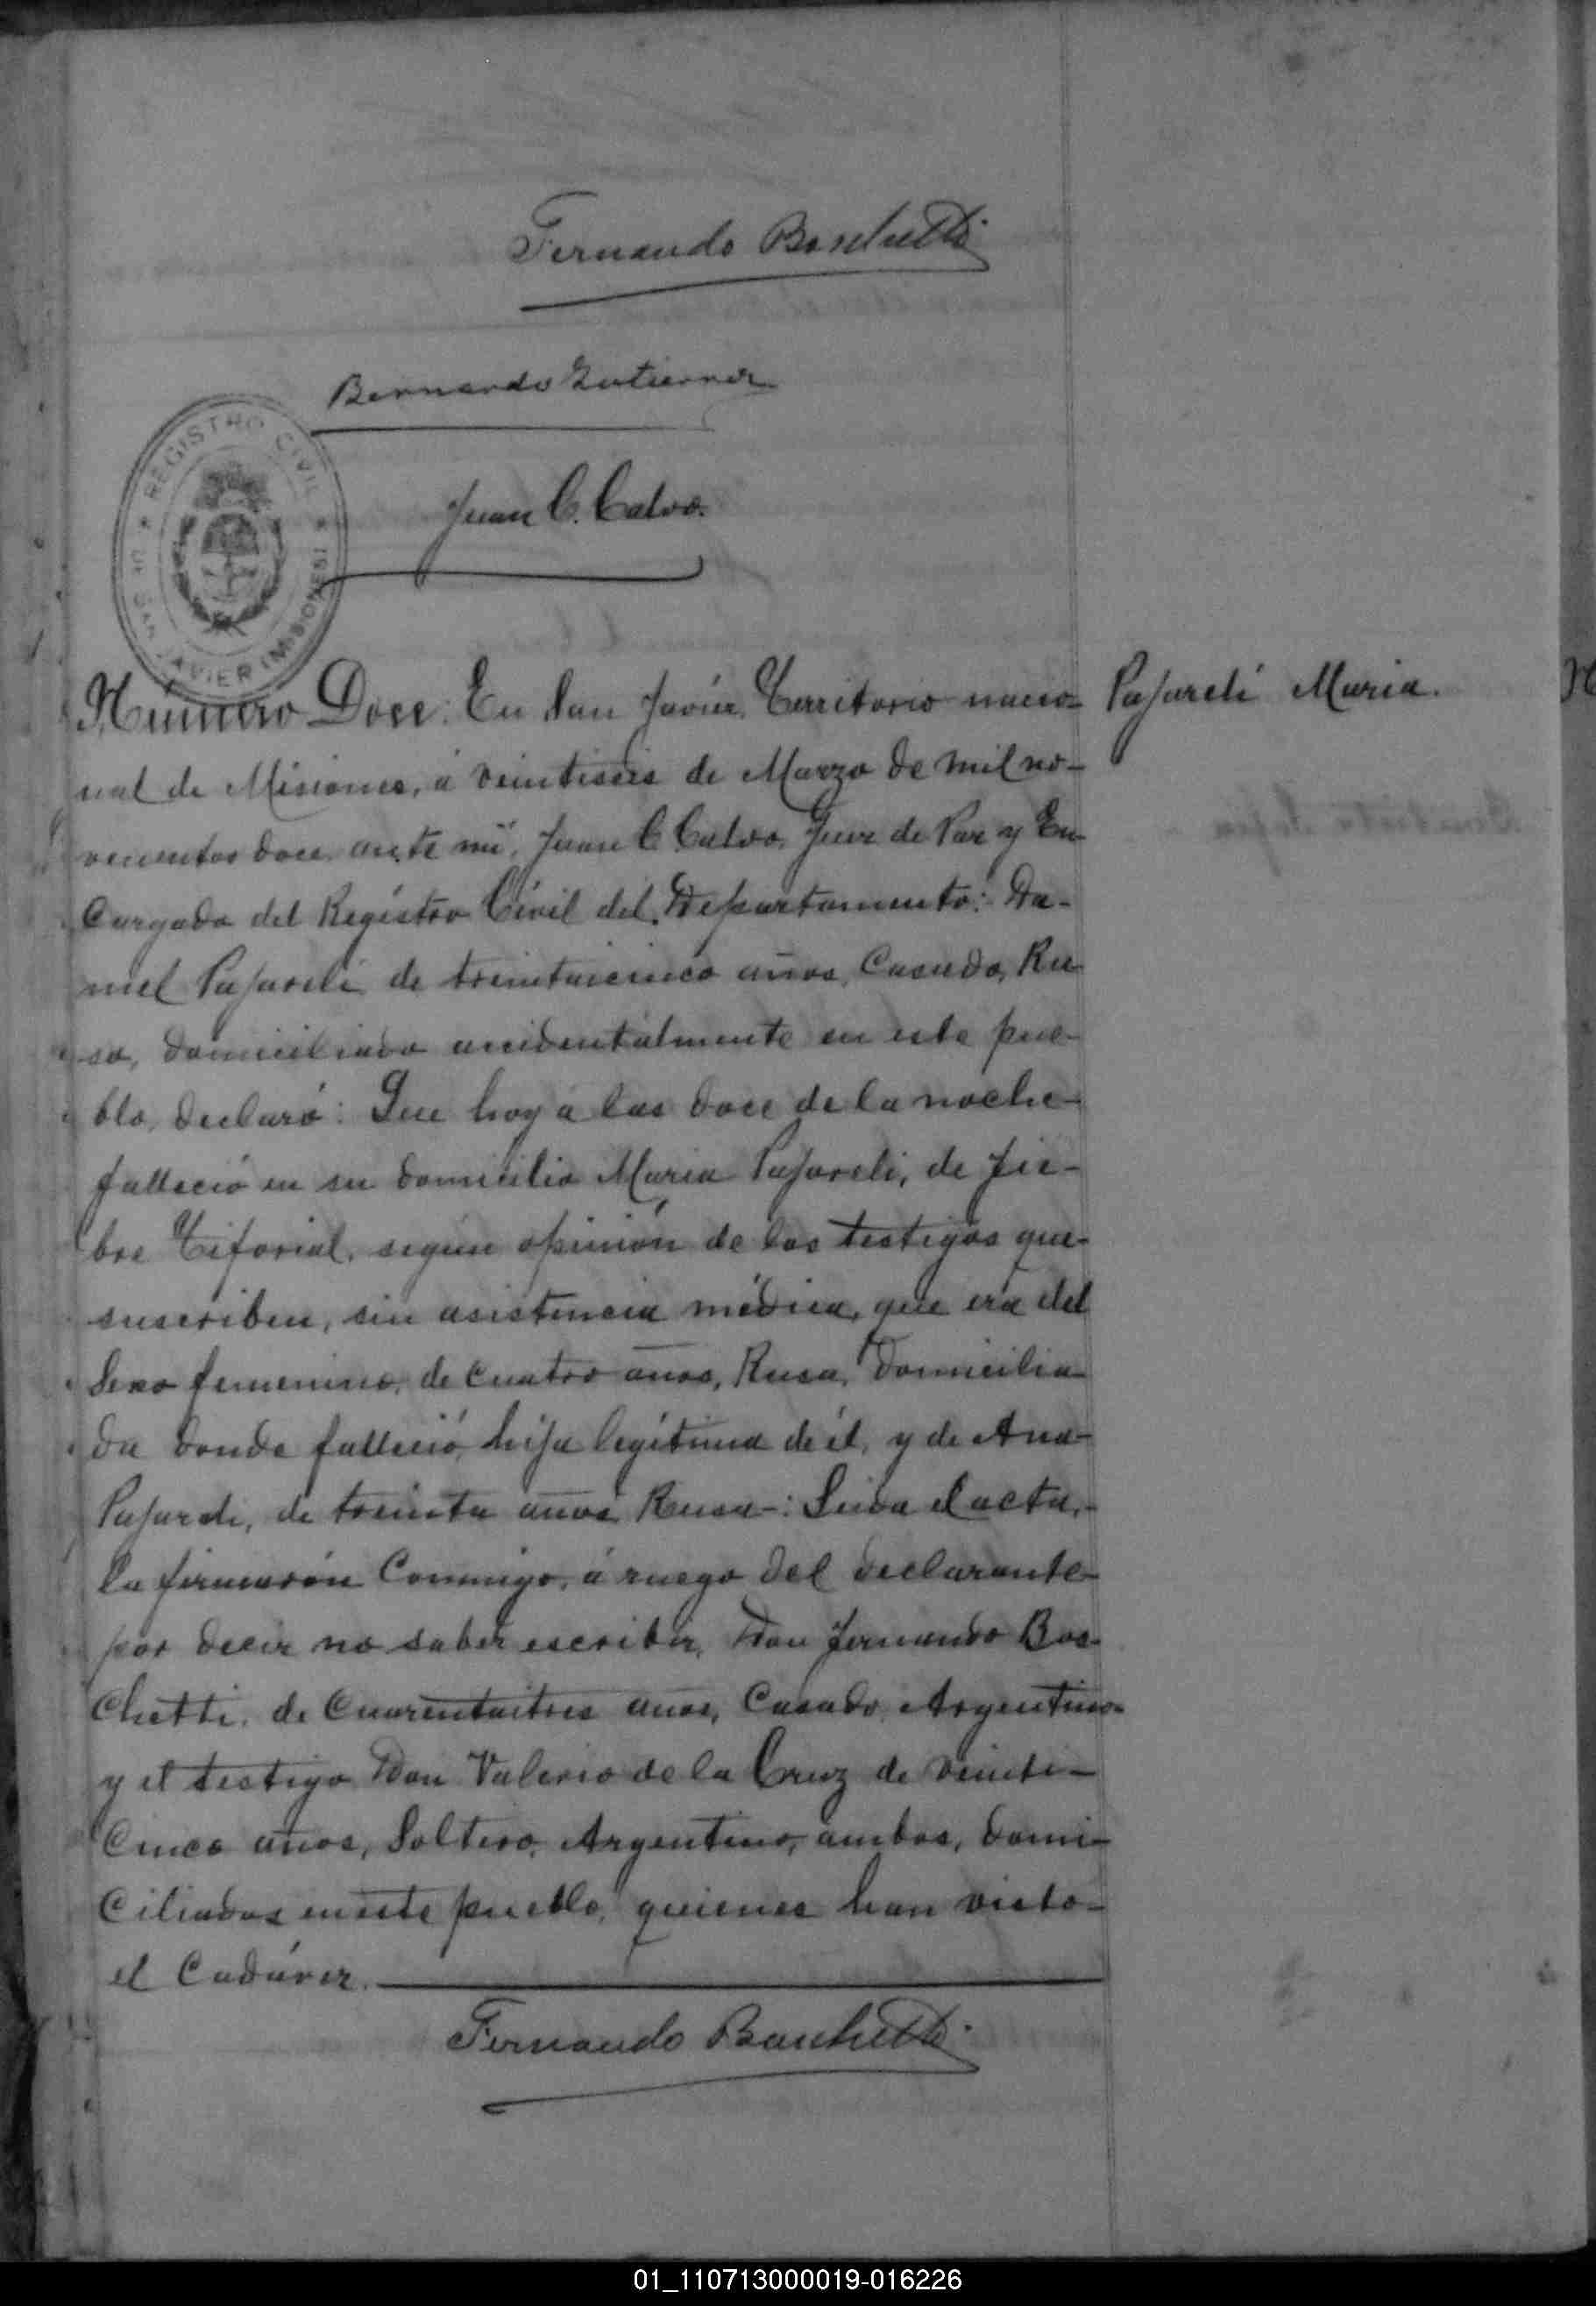 Fernando Boschetti
Bernardo Gutierrez
Juan C. Calvo.
REGISTRO CIVIL
DE SAN JAVIER (MISIONES)
Número Doce: En San Javier, Territorio nacio- Pajareli Maria.
nal de Misiones, á veintiseis de Marzo de mil no-
vecientos doce, ante mí, Juan C. Calvo, Juez de Paz y En
cargado del Registro Civil del Departamento: Da-
niel Pajareli de treintaicinco años, Casado, Ru
so, domiciliado accidentalmente en este pue-
blo, declaró: Que hoy á las doce de la noche
falleció en su domicilio Maria Pajareli, de fie-
bre Tiforial, según opinión de los testigos que
suscriben, sin asistencia médica, que era del
Sexo femenino, de cuatro años, Rusa, domicilia
da donde falleció, hija legítima de él, y de Ana
Pajareli, de treinta años Rusa-: Leida el acta,
la firmarón Conmigo, á ruego del declarante
por decir no saber escribir, Don Fernando Bos-
Chetti, de Cuarentaitres años, Casado, Argentino
y el testigo Don Valerio de la Cruz de veinti-
Cinco años, Soltero, Argentino, ambos, domi-
Ciliados en este pueblo, quienes han visto
el Cadáver.
Fernando Boschetti
01_110713000019-016226